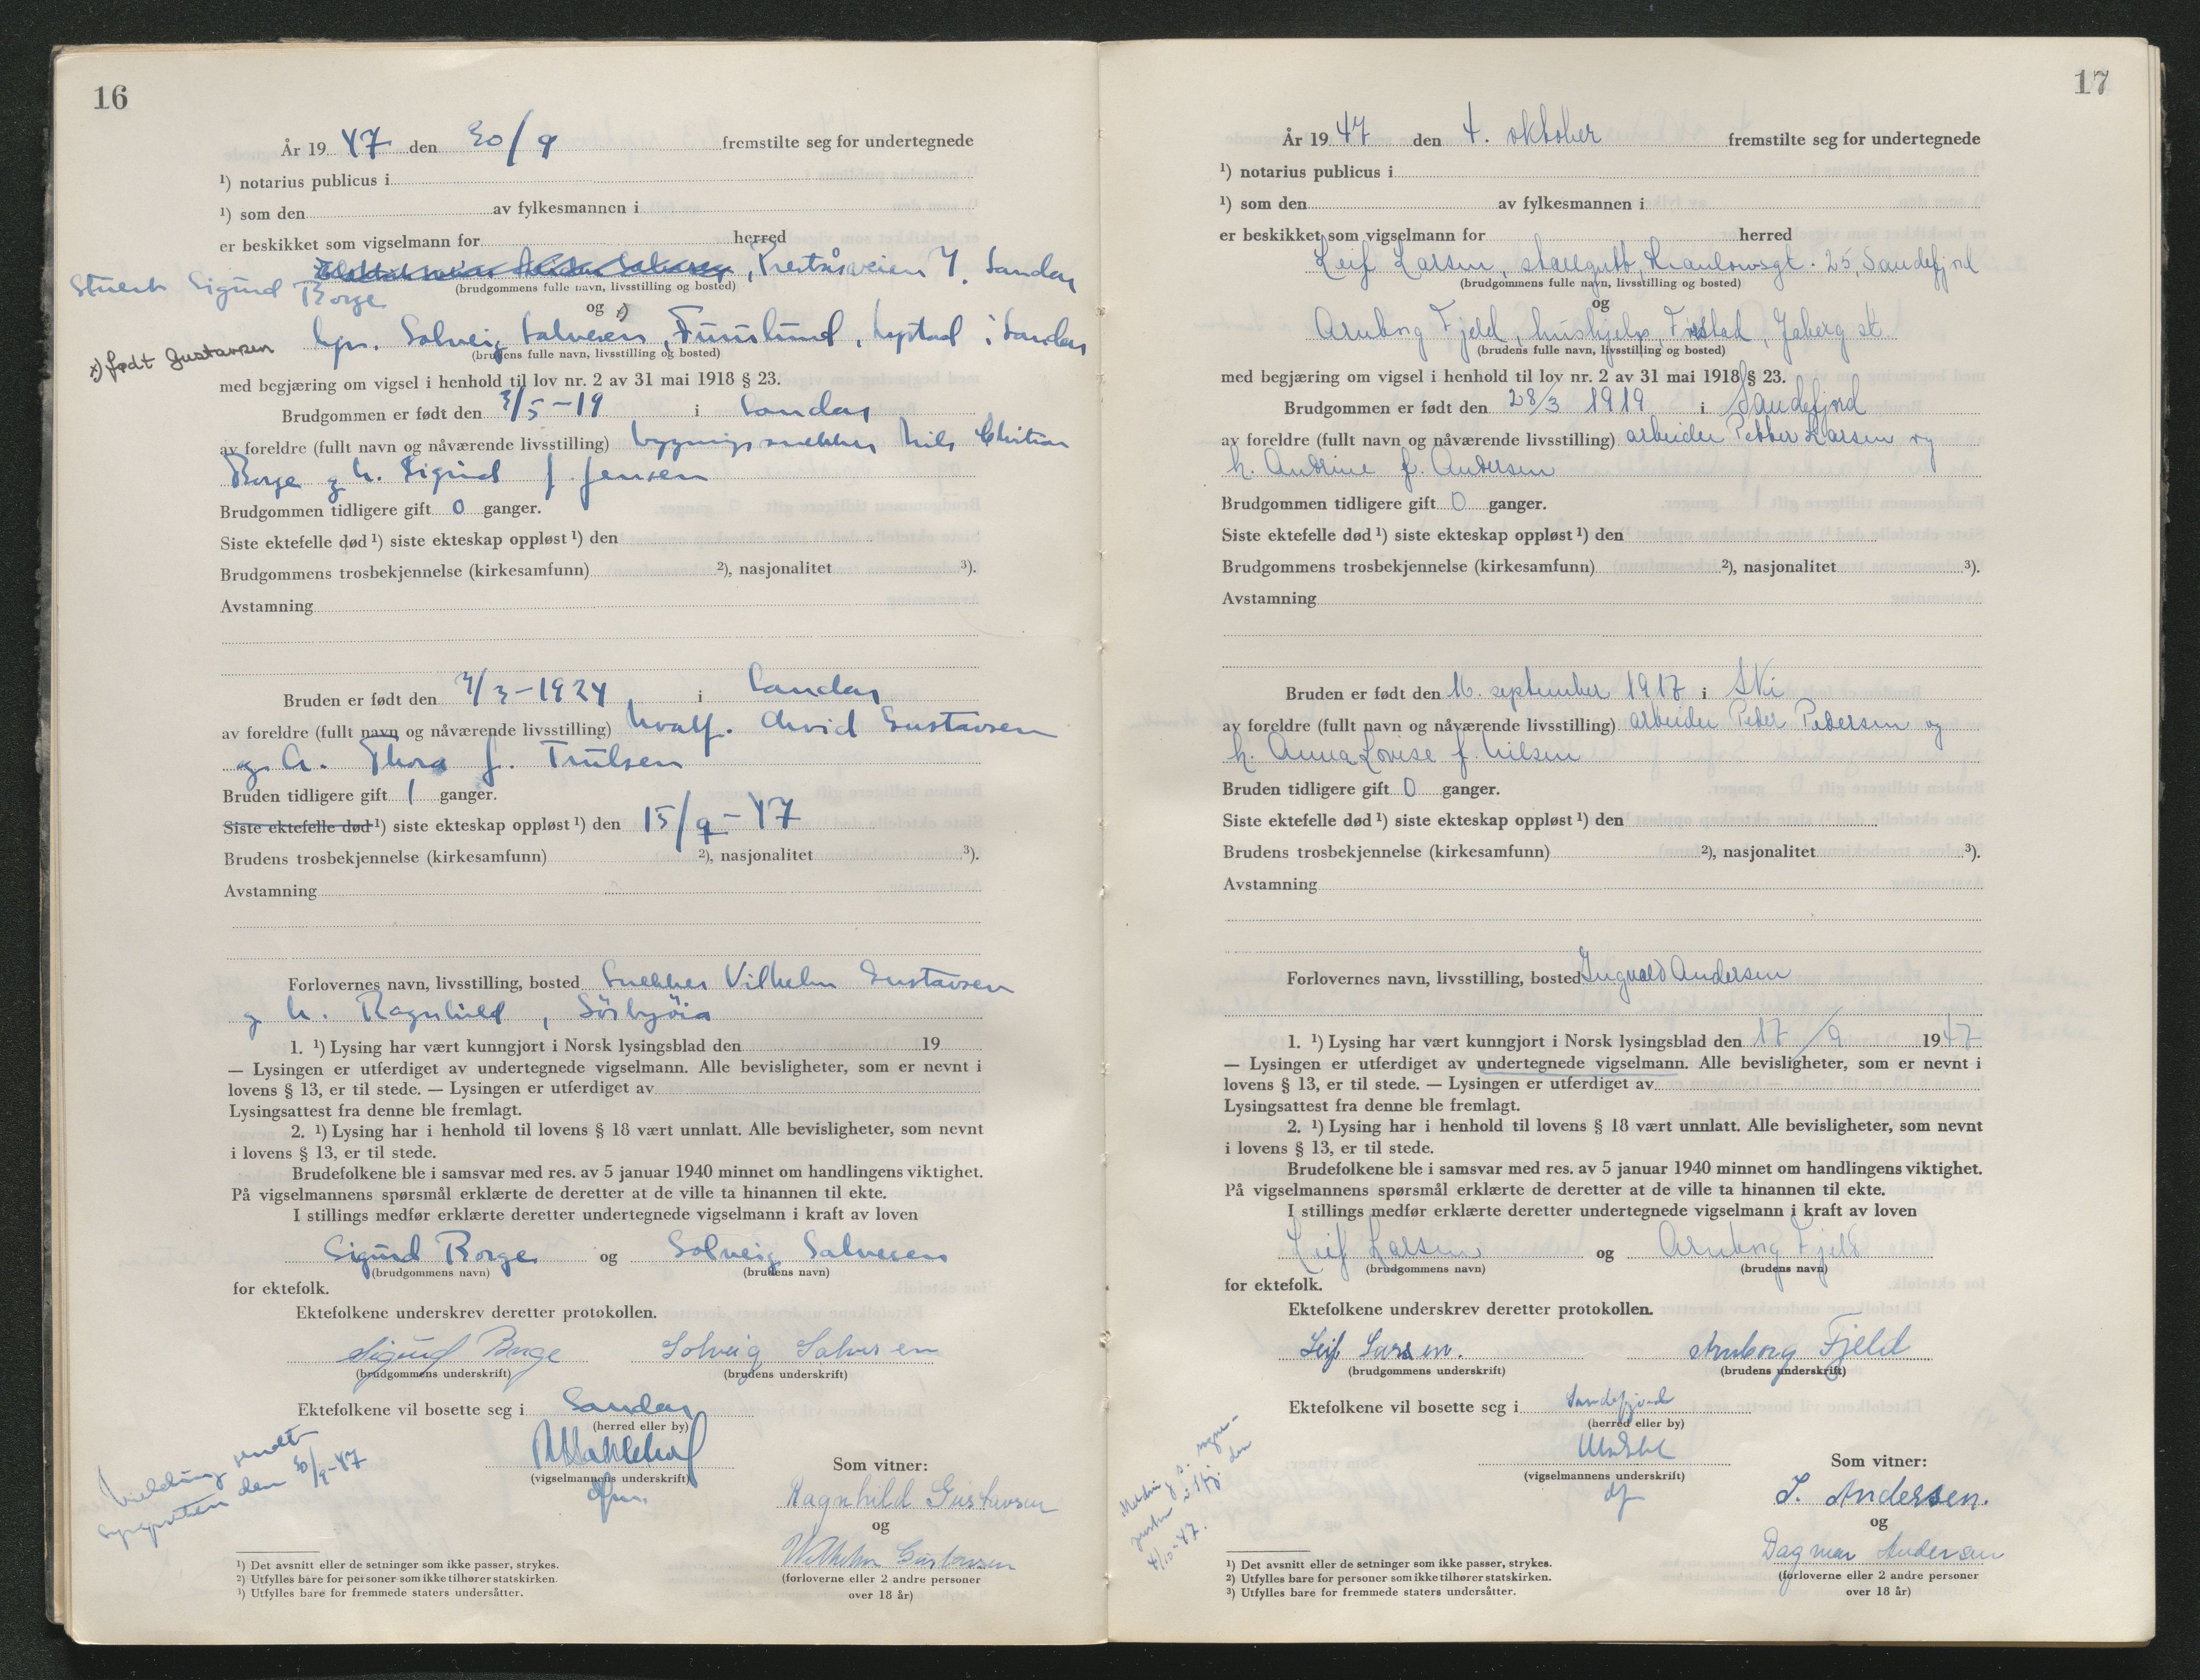 16
År 19 47 den 30/9 fremstilte seg for undertegnede
¹) notarius publicus i
¹) som den av fylkesmannen i
er beskikket som vigselmann for herred
Stuert Sigurd Borge , Preståsveien 7. Sandar
(brudgommens fulle navn, livsstilling og bosted)
og x)
x) født Gustavsen
hjm. Solveig Salvesen, Furulund, Nystad i Sandar
(brudens fulle navn, livsstilling og bosted)
med begjæring om vigsel i henhold til lov nr. 2 av 31 mai 1918 § 23.
Brudgommen er født den /5-19 i Sandar
av foreldre (fullt navn og nåværende livsstilling) bygningssnekker Nils Christian
Borge og h. Sigrid f. Jensen
Brudgommen tidligere gift 0 ganger.
Siste ektefelle død ¹) siste ekteskap oppløst ¹) den
Brudgommens trosbekjennelse (kirkesamfunn) ²), nasjonalitet ³).
Avstamning
Bruden er født den /3-1924 i Sandar
av foreldre (fullt navn og nåværende livsstilling) hvalf. Arvid Gustavsen
og h. Thora f. Trulsen
Bruden tidligere gift 1 ganger.
Siste ektefelle død ¹) siste ekteskap oppløst ¹) den 15/9-47
Brudens trosbekjennelse (kirkesamfunn) ²), nasjonalitet ³).
Avstamning
Forlovernes navn, livsstilling, bosted Snekker Vilhelm Gustavsen
og h. Ragnhild, Sörbyöia
1. ¹) Lysing har vært kunngjort i Norsk lysingsblad den 19
— Lysingen er utferdiget av undertegnede vigselmann. Alle bevisligheter, som er nevnt i
lovens § 13, er til stede. — Lysingen er utferdiget av
Lysingsattest fra denne ble fremlagt.
2. ¹) Lysing har i henhold til lovens § 18 vært unnlatt. Alle bevisligheter, som nevnt
i lovens § 13, er til stede.
Brudefolkene ble i samsvar med res. av 5 januar 1940 minnet om handlingens viktighet.
På vigselmannens spørsmål erklærte de deretter at de ville ta hinannen til ekte.
I stillings medfør erklærte deretter undertegnede vigselmann i kraft av loven
Sigurd Borge og Solveig Salvesen
(brudgommens navn) (brudens navn)
for ektefolk.
Ektefolkene underskrev deretter protokollen.
Sigurd Borge Solveig Salvesen
(brudgommens underskrift) (brudens underskrift)
Ektefolkene vil bosette seg i Sandar
(herred eller by)
(vigselmannens underskrift)
Melding sendt
sognepresten den 30/9-47
Som vitner:
Ragnhild Gustavsen
og
Wilhelm Gustavsen
(forloverne eller 2 andre personer
over 18 år)
¹) Det avsnitt eller de setninger som ikke passer, strykes.
²) Utfylles bare for personer som ikke tilhører statskirken.
³) Utfylles bare for fremmede staters undersåtter.
17
År 19 47 den 4. oktober fremstilte seg for undertegnede
¹) notarius publicus i
¹) som den av fylkesmannen i
er beskikket som vigselmann for herred
Leif Larsen, stallgutt, gt. 25, Sandefjord
(brudgommens fulle navn, livsstilling og bosted)
og
Arnborg Fjeld, hushjelp, Jåberg st.
(brudens fulle navn, livsstilling og bosted)
med begjæring om vigsel i henhold til lov nr. 2 av 31 mai 1918 § 23.
Brudgommen er født den 28/3 1919 i Sandefjord
av foreldre (fullt navn og nåværende livsstilling) arbeider Petter Larsen og
h. Andrine f. Andersen
Brudgommen tidligere gift 0 ganger.
Siste ektefelle død ¹) siste ekteskap oppløst ¹) den
Brudgommens trosbekjennelse (kirkesamfunn) ²), nasjonalitet ³).
Avstamning
Bruden er født den 16. september 1917 i Ski
av foreldre (fullt navn og nåværende livsstilling) arbeider Peder Pedersen og
h. Anna Lovise f. Nilsen
Bruden tidligere gift 0 ganger.
Siste ektefelle død ¹) siste ekteskap oppløst ¹) den
Brudens trosbekjennelse (kirkesamfunn) ²), nasjonalitet ³).
Avstamning
Forlovernes navn, livsstilling, bosted Ingvald Andersen
1. ¹) Lysing har vært kunngjort i Norsk lysingsblad den 17/9 1947
— Lysingen er utferdiget av undertegnede vigselmann. Alle bevisligheter, som er nevnt i
lovens § 13, er til stede. — Lysingen er utferdiget av
Lysingsattest fra denne ble fremlagt.
2. ¹) Lysing har i henhold til lovens § 18 vært unnlatt. Alle bevisligheter, som nevnt
i lovens § 13, er til stede.
Brudefolkene ble i samsvar med res. av 5 januar 1940 minnet om handlingens viktighet.
På vigselmannens spørsmål erklærte de deretter at de ville ta hinannen til ekte.
I stillings medfør erklærte deretter undertegnede vigselmann i kraft av loven
Leif Larsen og Arnborg Fjeld
(brudgommens navn) (brudens navn)
for ektefolk.
Ektefolkene underskrev deretter protokollen.
Leif Larsen. Arnborg Fjeld
(brudgommens underskrift) (brudens underskrift)
Ektefolkene vil bosette seg i Sandefjord
(herred eller by)
(vigselmannens underskrift)
Melding s. sogne-
presten i Sfj. den
4/10-47.
Som vitner:
I. Andersen.
og
Dagmar Andersen
(forloverne eller 2 andre personer
over 18 år)
¹) Det avsnitt eller de setninger som ikke passer, strykes.
²) Utfylles bare for personer som ikke tilhører statskirken.
³) Utfylles bare for fremmede staters undersåtter.